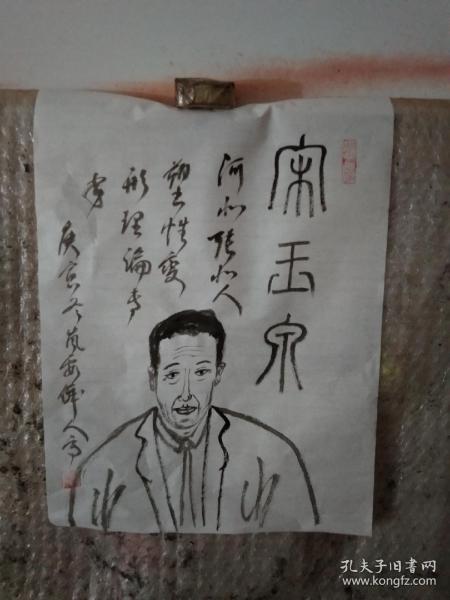 宋玉泉
河北张北人
塑性变
形理论专
家
庚寅冬
人
孔夫子旧书网
www.kongfz.com